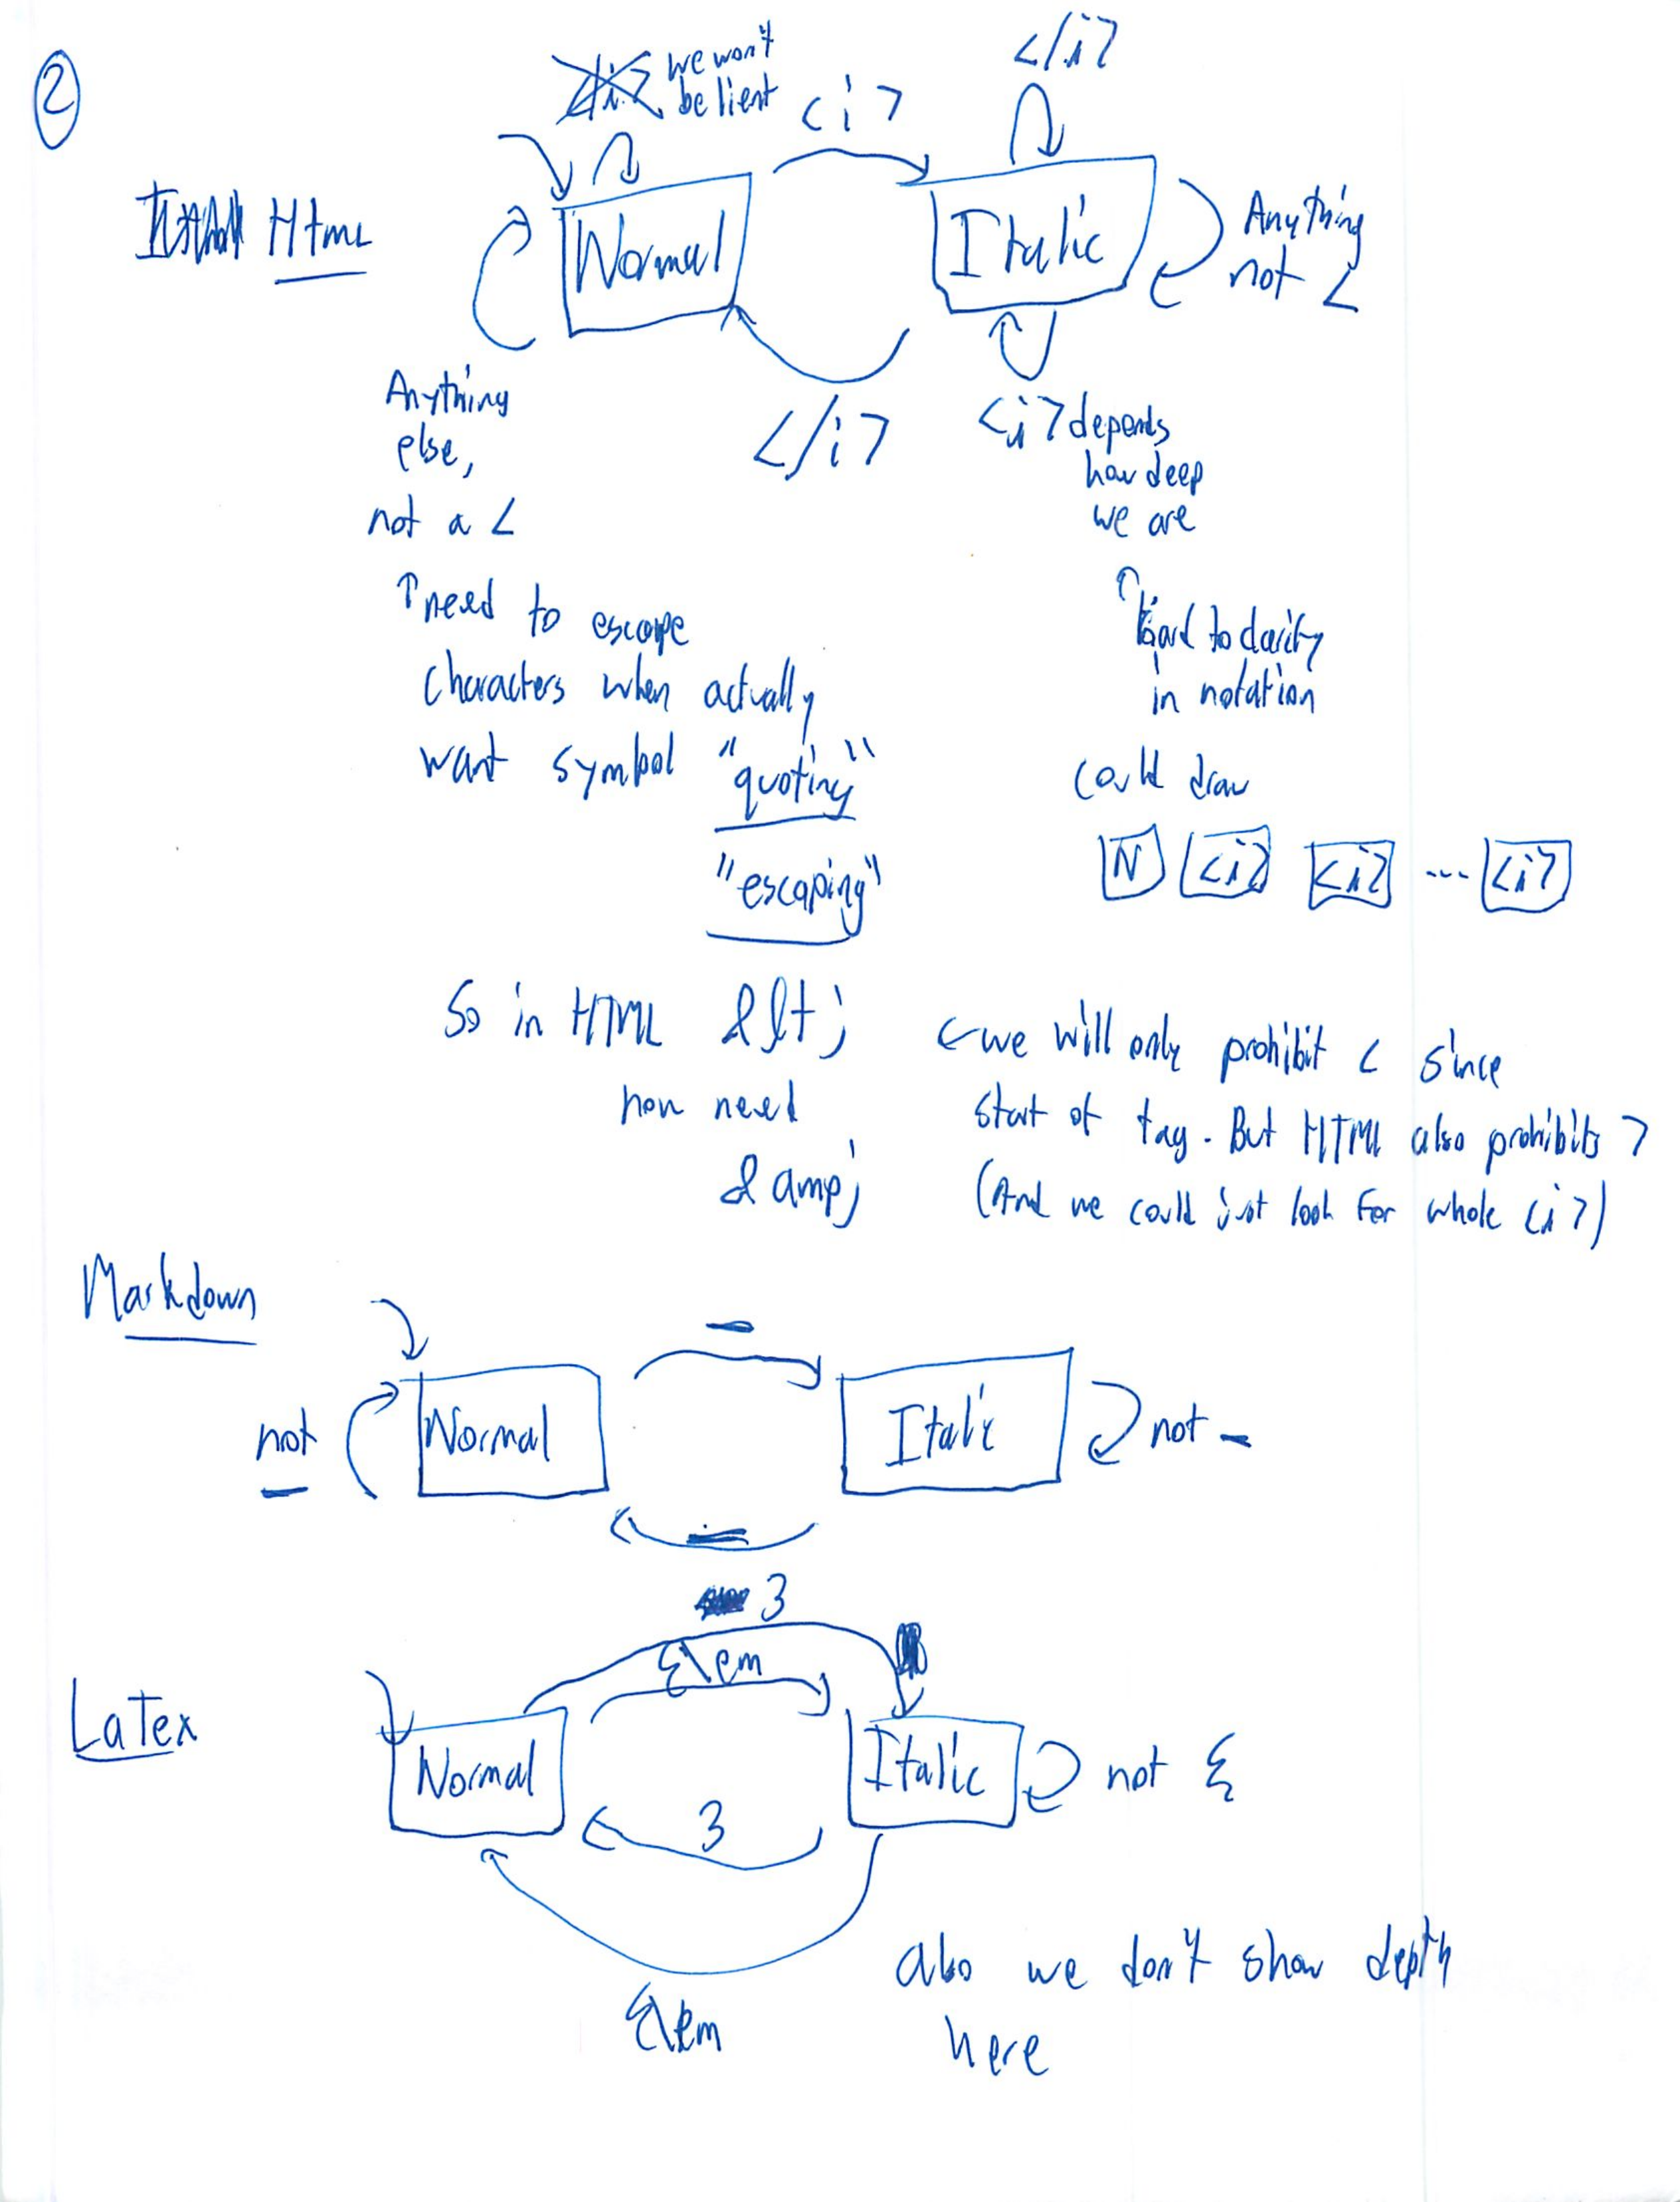 2
we won't
be lient
<i>
</i>
Html
Normal
Italic
Anything
not <
Anything
else,
not a <
</i>
<i> depends
how deep
we are
↑ need to escape
characters when actually
want symbol "quoting"
"escaping"
↑
to clarify
in notation
could draw
N <i> <i> ... <i>
So in HTML &lt;
now need
&amp;
← we will only prohibit < since
start of tag. But HTML also prohibits >
(And we could just look for whole <i>)
Markdown
_
not _
Normal
Italic
not _
_
}
{\em
LaTex
Normal
Italic
not {
}
{\em
also we don't show depth
here